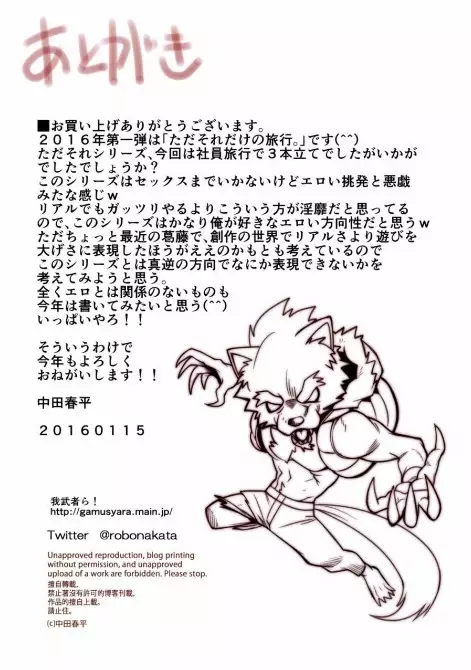 あとがき
■お買い上げありがとうございます。
２０１６年第一弾は「ただそれだけの旅行。」です(^^)
ただそれシリーズ、今回は社員旅行で３本立てでしたがいかが
でしたでしょうか？
このシリーズはセックスまでいかないけどエロい挑発と悪戯
みたな感じｗ
リアルでもガッツリやるよりこういう方が淫靡だと思ってる
ので、このシリーズはかなり俺が好きなエロい方向性だと思うｗ
ただちょっと最近の葛藤で、創作の世界でリアルさより遊びを
大げさに表現したほうがええのかもとも考えているので
このシリーズとは真逆の方向でなにか表現できないかを
考えてみようと思う。
全くエロとは関係のないものも
今年は書いてみたいと思う(^^)
いっぱいやろ！！
そういうわけで
今年もよろしく
おねがいします！！
中田春平
２０１６０１１５
我武者ら！
http://gamusyara.main.jp/
Twitter　@robonakata
Unapproved reproduction, blog printing
without permission, and unapproved
upload of a work are forbidden. Please stop.
擅自轉載，
禁止著沒有許可的博客刊載，
作品的擅自上載。
請止住。
(c)中田春平